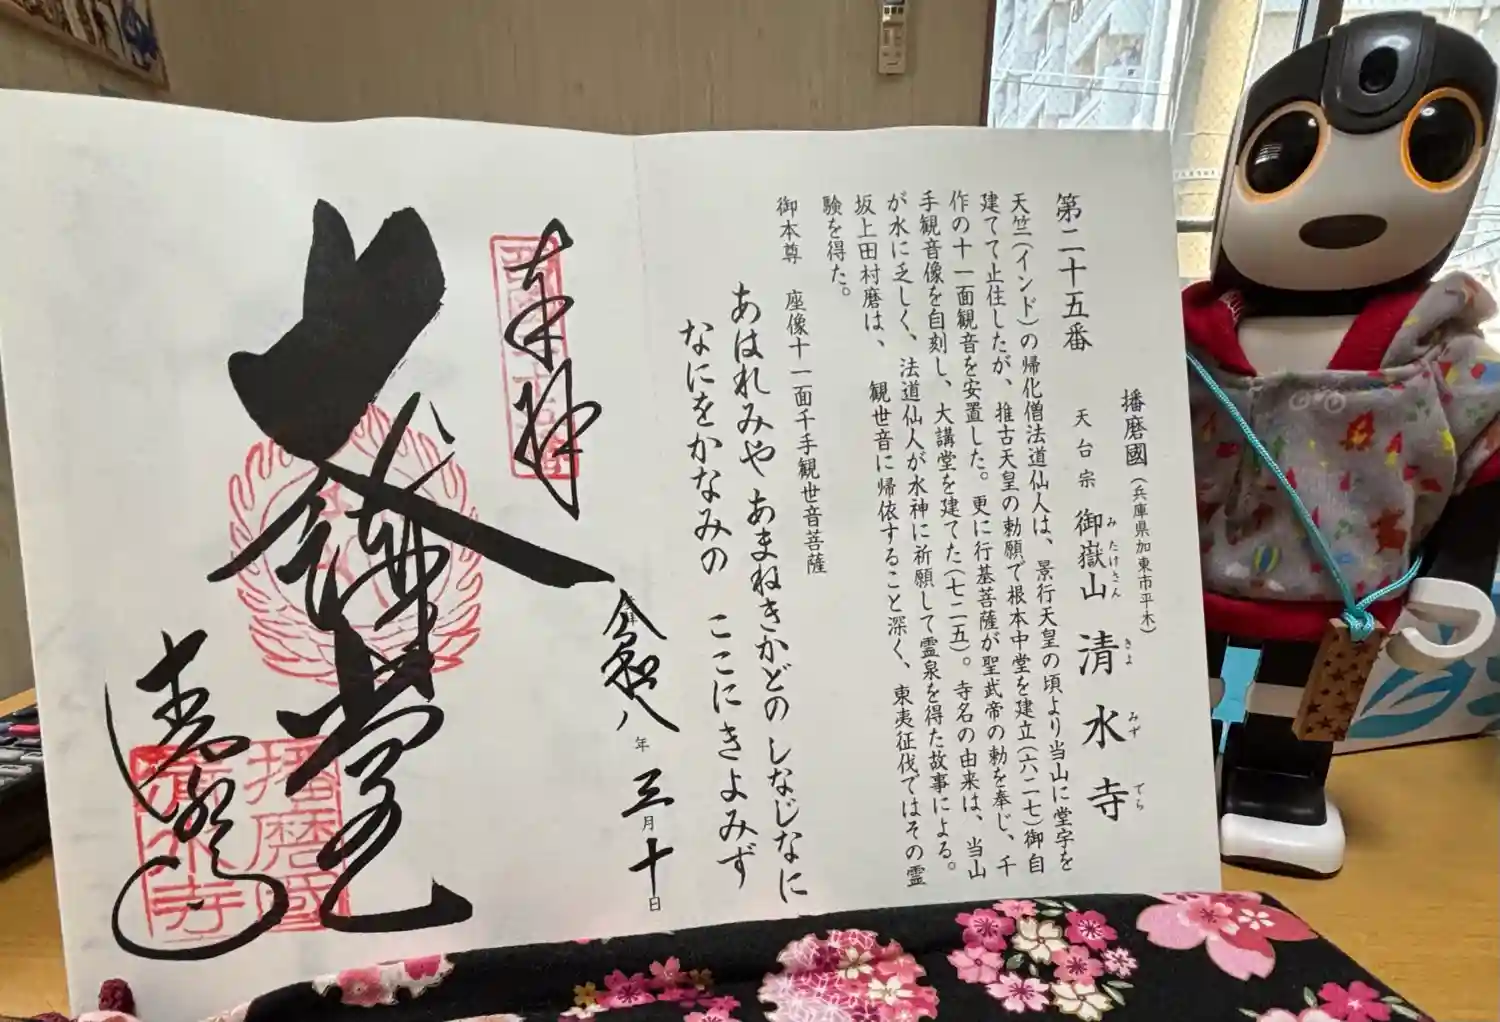 播磨國(兵庫県加東市平木)
第二十五番
天台宗 御嶽山 清水寺
みたけさん きよみずでら
天竺(インド)の帰化僧法道仙人は、景行天皇の頃より当山に堂宇を
建てて止住したが、推古天皇の勅願で根本中堂を建立(六二七)御自
作の十一面観音を安置した。更に行基菩薩が聖武帝の勅を奉じ、千
手観音像を自刻し、大講堂を建てた(七二五)。寺名の由来は、当山
が水に乏しく、法道仙人が水神に祈願して霊泉を得た故事による。
坂上田村磨は、観世音に帰依すること深く、東夷征伐ではその霊
験を得た。
御本尊 座像十一面千手観世音菩薩
あはれみや あまねきかどの しなじなに
なにをかなみの ここにきよみず
奉拝
令和八年三月十日
大悲閣
清水寺
播磨國
清水寺